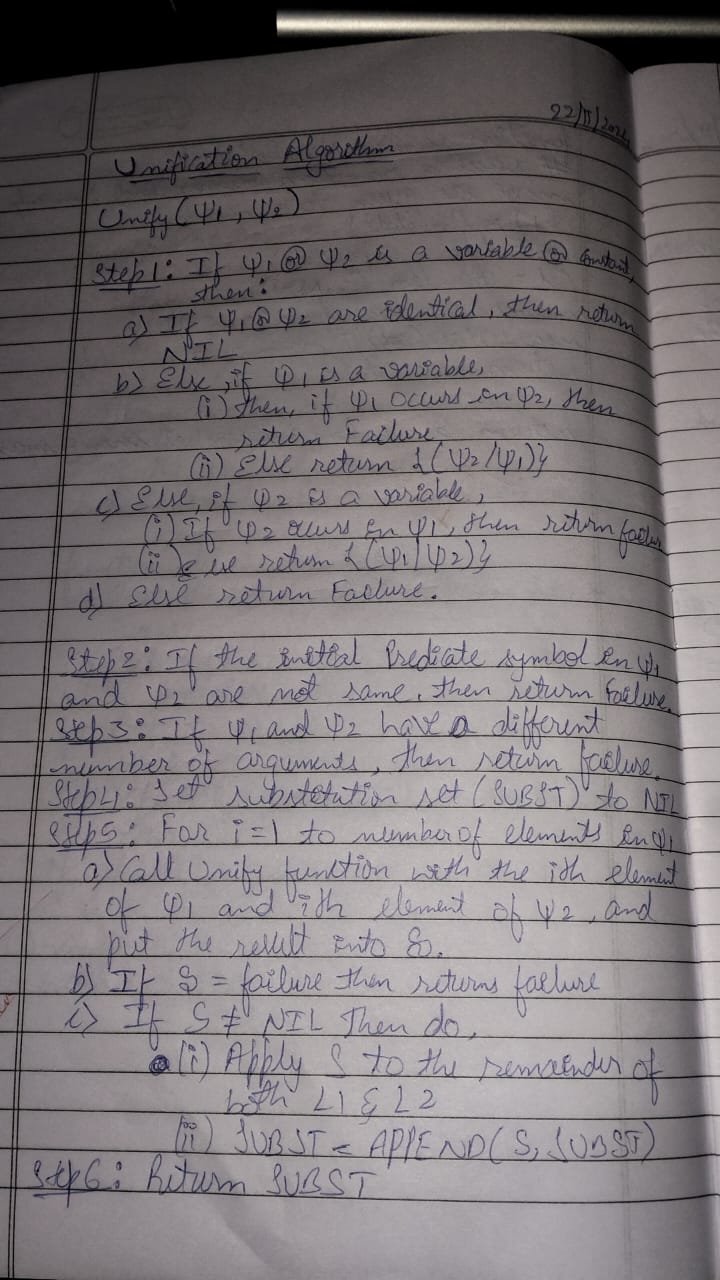 22/11/202
Unification Algorithm
Unify (Ψ1, Ψ2)
Step1: If Ψ1 or Ψ2 is a variable or constant,
then:
a) If Ψ1 or Ψ2 are identical, then return
NIL
b) Else, if Ψ1 is a variable,
(i) then, if Ψ1 occurs in Ψ2, then
return Failure
(ii) Else return {(Ψ2/Ψ1)}
c) Else, if Ψ2 is a variable,
(i) If Ψ2 occurs in Ψ1, then return failure
(ii) else return {(Ψ1/Ψ2)}
d) Else return Failure.
Step2: If the initial Predicate symbol in Ψ1
and Ψ2 are not same, then return failure.
Step3: If Ψ1 and Ψ2 have a different
number of arguments, then return failure.
Step4: Set substitution set (SUBST) to NIL
Step5: For i=1 to number of elements in Ψ1
a) Call Unify function with the ith element
of Ψ1 and ith element of Ψ2, and
put the result into S.
b) If S = failure then returns failure
c) If S ≠ NIL Then do,
(i) Apply S to the remainder of
both L1 & L2
(ii) SUBST = APPEND(S, SUBST)
Step6: Return SUBST